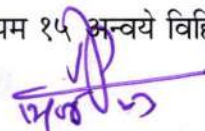 यम १५ अन्वये विहि